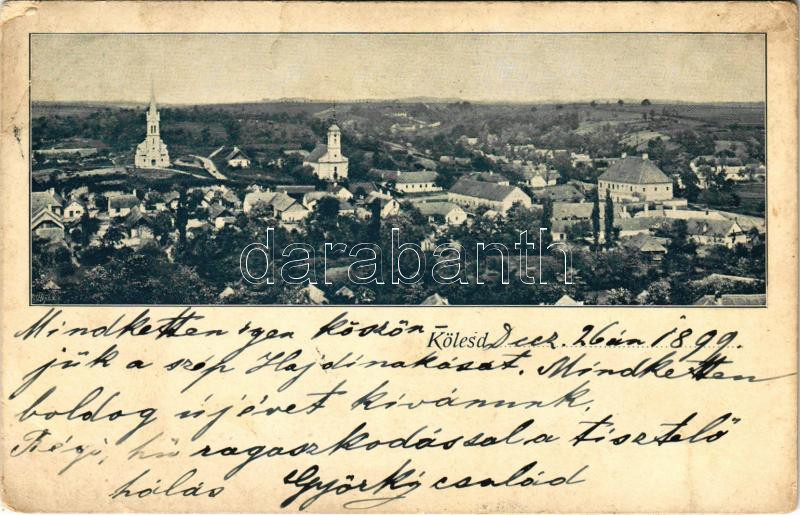 darabanth
Mindketten igen köszön-
Kölesd Dec. 26án 1899.
jük a szép Hajdinakását. Mindketten
boldog újévet kívánunk.
Régi, hű ragaszkodással a tisztelő
hálás Györky család